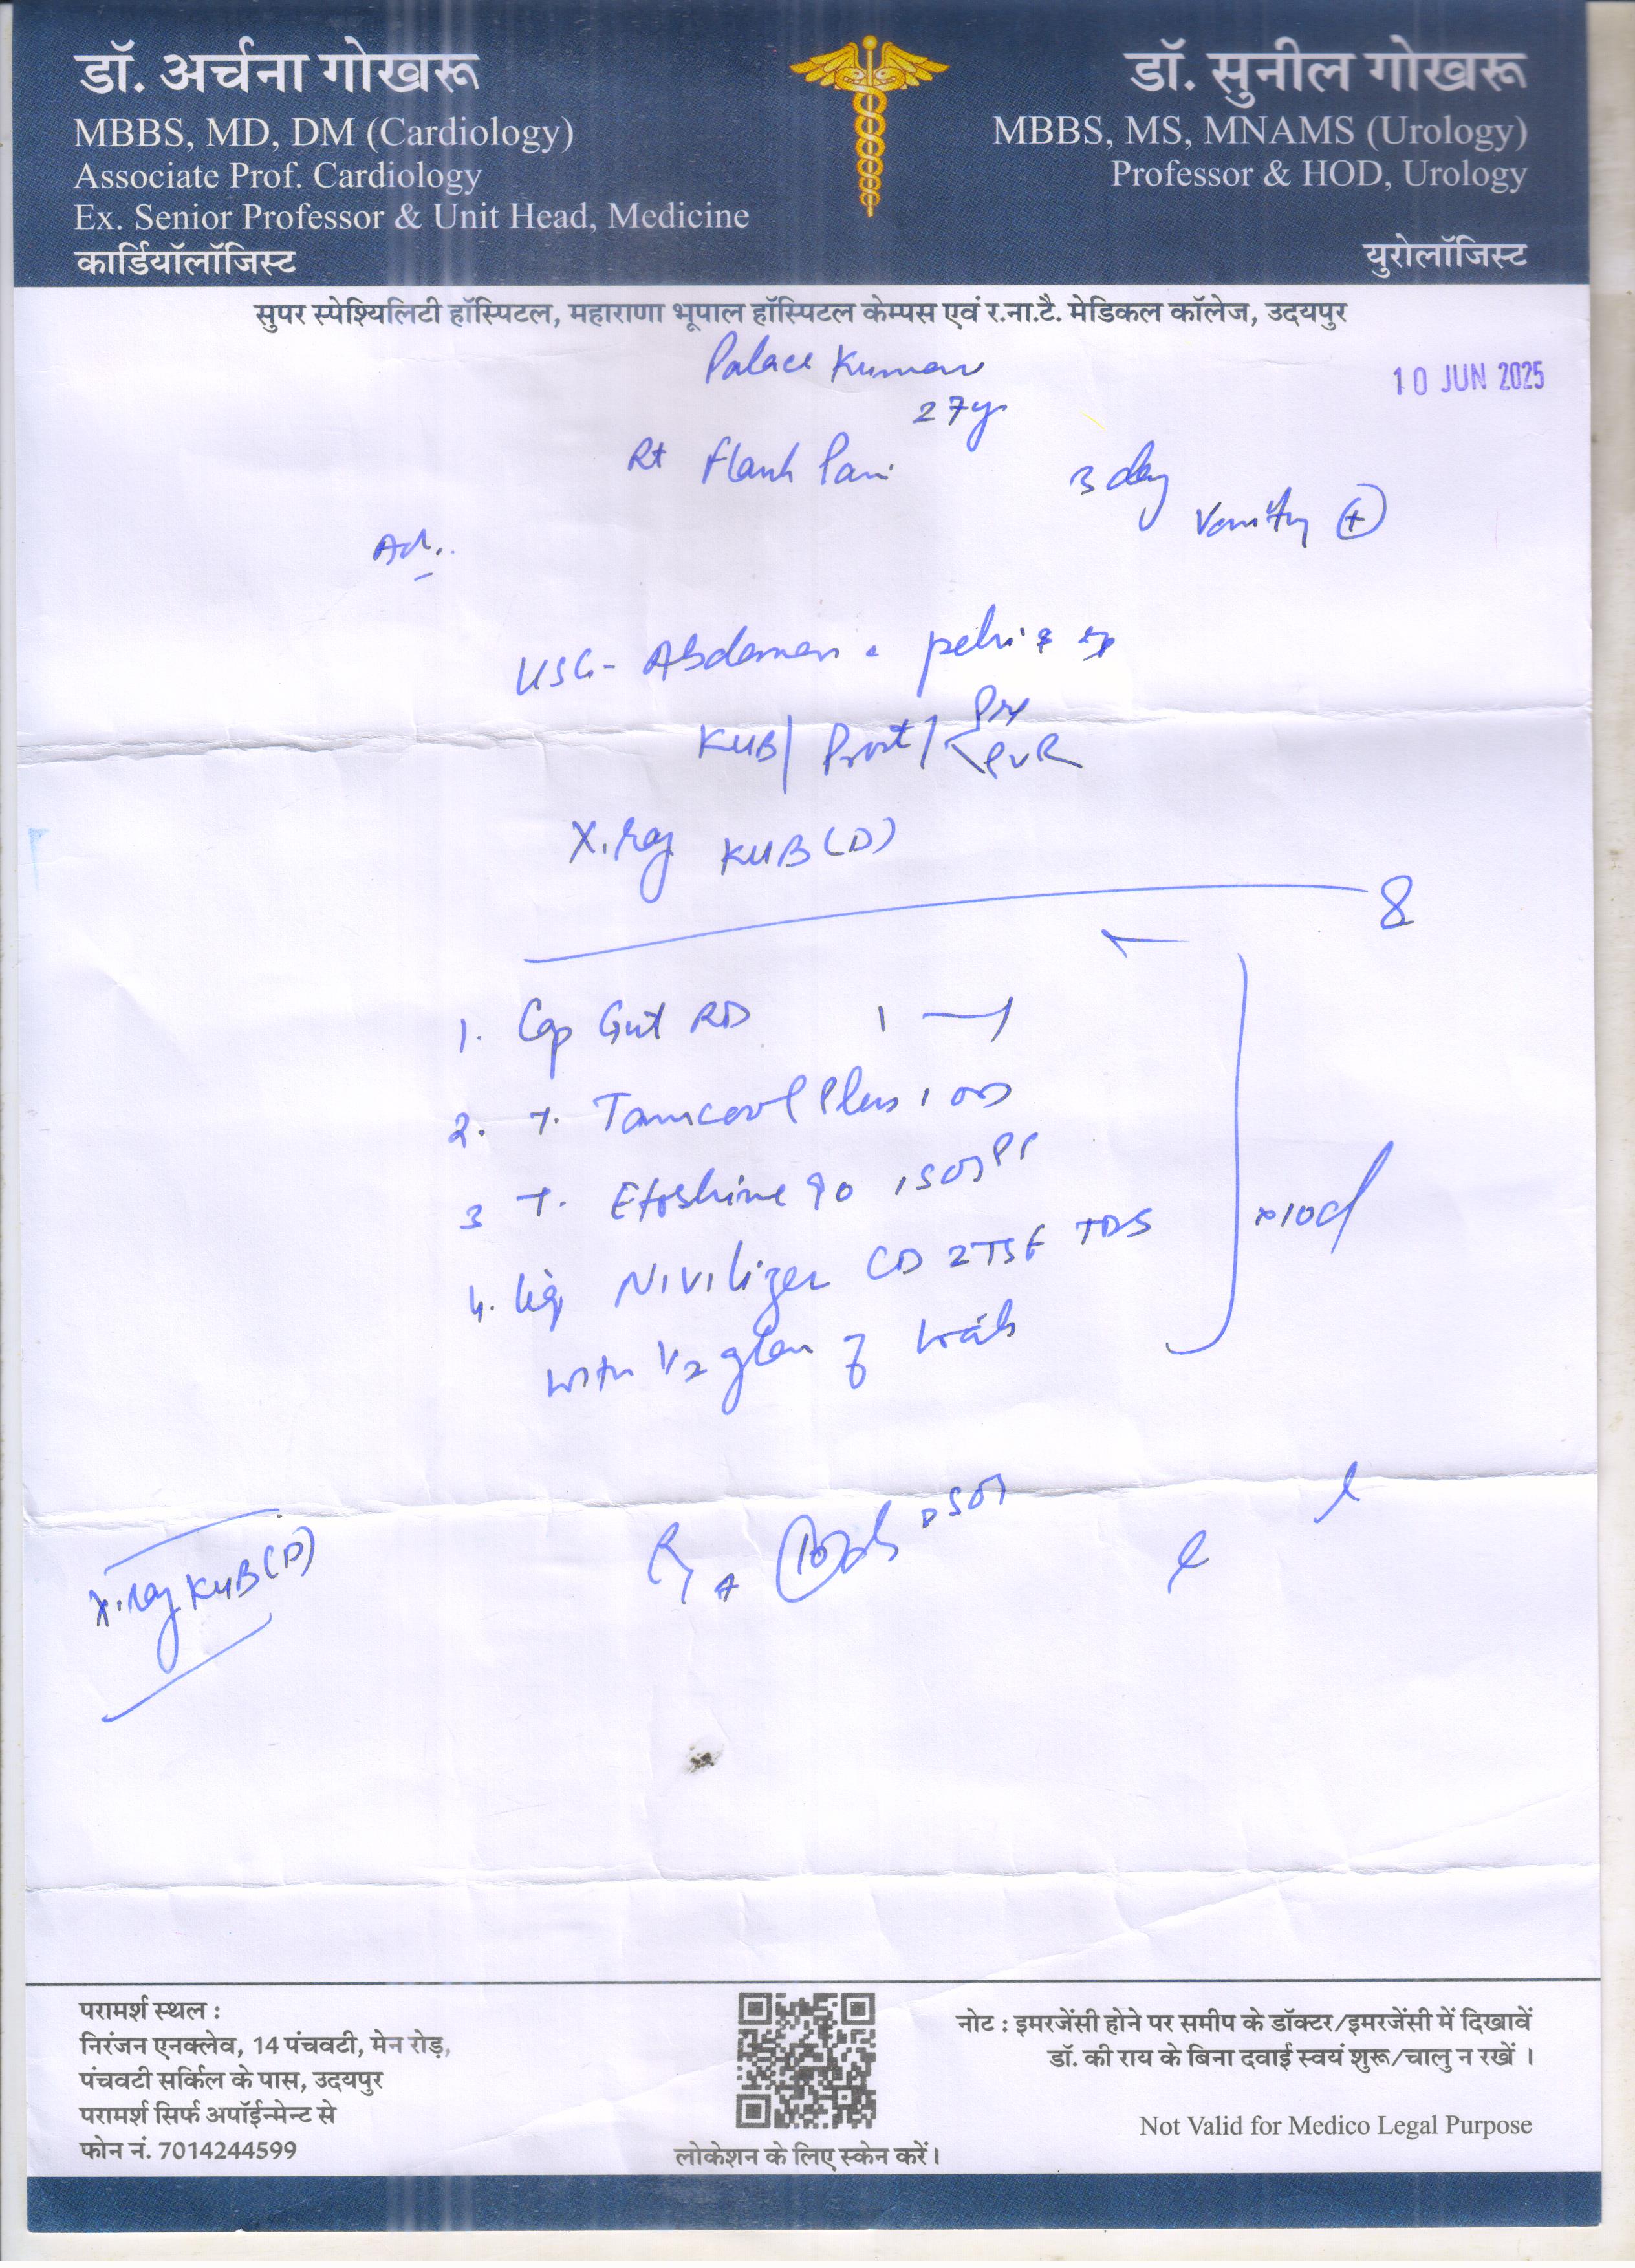 डॉ. अर्चना गोखरू
MBBS, MD, DM (Cardiology)
Associate Prof. Cardiology
Ex. Senior Professor & Unit Head, Medicine
कार्डियॉलॉजिस्ट
डॉ. सुनील गोखरू
MBBS, MS, MNAMS (Urology)
Professor & HOD, Urology
युरोलॉजिस्ट
सुपर स्पेश्यिलिटी हॉस्पिटल, महाराणा भूपाल हॉस्पिटल केम्पस एवं र.ना.टै. मेडिकल कॉलेज, उदयपुर
Kumar
10 JUN 2025
27y
Rt Flank Pain
3 day
Vomiting +
Ad.
USG- Abdomen
KUB/ Prost/ Pre
PVR
X.ray KUB (D)
1. Cap Gut RD 1
2. T. Plus 1 OD
3 T. Etoshine 90 1 SOS
4. Liq Nivilizer CD 2TSF TDS
with 1/2 glass of water
x10d
SOS
X.ray KUB (D)
परामर्श स्थल :
निरंजन एनक्लेव, 14 पंचवटी, मेन रोड़,
पंचवटी सर्किल के पास, उदयपुर
परामर्श सिर्फ अपॉईन्मेन्ट से
फोन नं. 7014244599
लोकेशन के लिए स्केन करें।
नोट : इमरजेंसी होने पर समीप के डॉक्टर/इमरजेंसी में दिखावें
डॉ. की राय के बिना दवाई स्वयं शुरू/चालु न रखें ।
Not Valid for Medico Legal Purpose